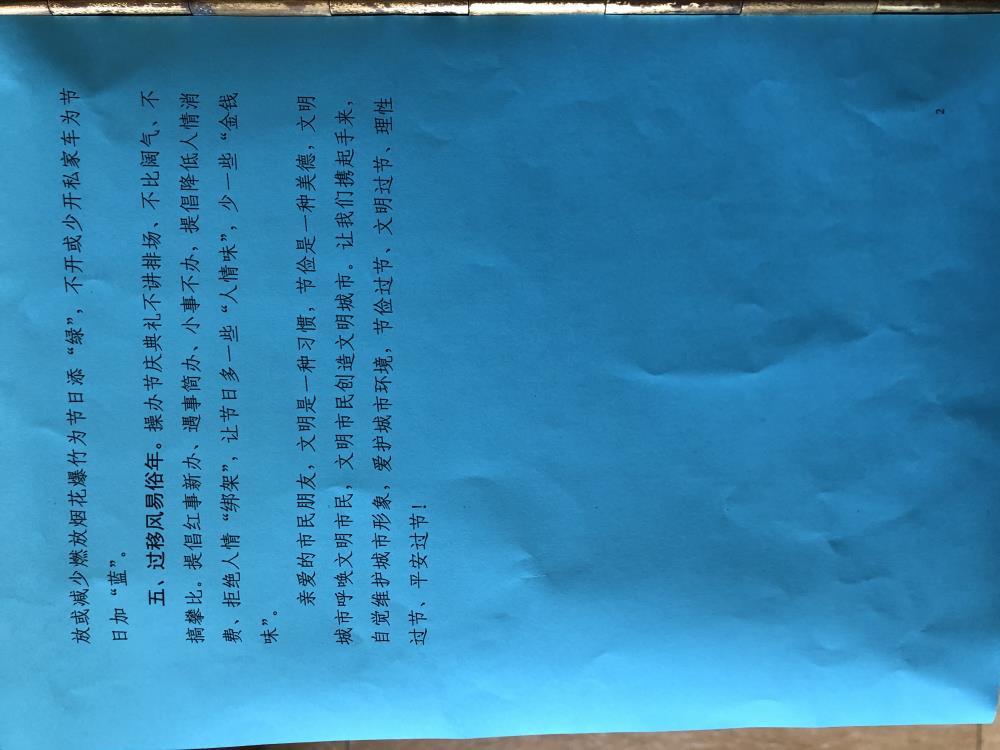 放或减少燃放烟花爆竹为节日添“绿”，不开或少开私家车为节
日加“蓝”。
五、过移风易俗年。操办节庆典礼不讲排场、不比阔气、不
搞攀比。提倡红事新办、遇事简办、小事不办，提倡降低人情消
费、拒绝人情“绑架”，让节日多一些“人情味”，少一些“金钱
味”。
亲爱的市民朋友，文明是一种习惯，节俭是一种美德，文明
城市呼唤文明市民，文明市民创造文明城市。让我们携起手来，
自觉维护城市形象，爱护城市环境，节俭过节、文明过节、理性
过节、平安过节！
2